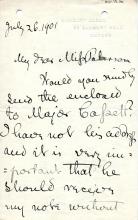 July 26. 1901
My dear Miss Paterson
Would you kindly
send the enclosed
to Major
I have not his address
and it is very im-
portant that he
should receive
my note without